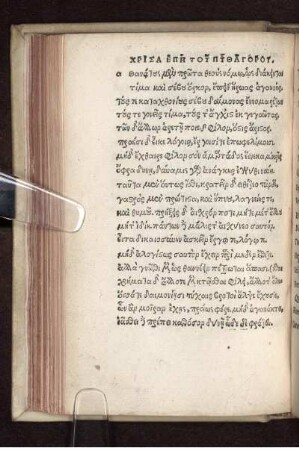 ΧΡΥΣΑ ΕΠΗ ΤΟΥ ΠΥΘΑΓΟΡΟΥ.
Ἀθανάτους μὲν πρῶτα θεοὺς νόμῳ ὡς διάκεινται
τίμα καὶ σέβου ὅρκον, ἔπειθ' ἥρωας ἀγαυούς,
τούς τε καταχθονίους σέβε δαίμονας ἔννομα ῥέζων
τούς τε γονεῖς τίμα, τούς τ' ἄγχιστ' ἐγγεγαῶτας
τῶν δ' ἄλλων ἀρετῇ ποιεῦ φίλον, ὅστις ἄριστος.
πραέσι δ' εἶκε λόγοις, ἔργοισί τ' ἐπωφελίμοισι
μηδ' ἔχθαιρε φίλον σὸν ἁμαρτάδος εἵνεκα μικρῆς
ὄφρα δύνῃ, δύναμις γὰρ ἀνάγκης ἐγγύθι ναίει
ταῦτα μὲν οὕτως ἴσθι, κρατεῖν δ' εἰθίζεο τῶνδε,
γαστρὸς μὲν πρώτιστα, καὶ ὕπνου, λαγνείης τε,
καὶ θυμοῦ. πρήξεις δ' αἰσχρόν ποτε μήτε μετ' ἄλλου
μήτ' ἰδίῃ. πάντων δὲ μάλιστ' αἰσχύνεο σαυτόν.
εἶτα δικαιοσύνην ἀσκεῖν ἔργῳ τε, λόγῳ τε.
μηδ' ἀλογίστως σαυτὸν ἔχειν περὶ μηδὲν ἔθιζε.
ἀλλὰ γνῶθι μὲν ὡς θανέειν πέπρωται ἅπασι
χρήματα δ' ἄλλοτε μὲν κτᾶσθαι φιλεῖ, ἄλλοτ' ὀλέσθαι
ὅσσα τε δαιμονίῃσι τύχαις βροτοὶ ἄλγε' ἔχουσιν
ὧν ἂν μοῖραν ἔχῃς, πράως φέρε, μηδ' ἀγανάκτει.
ἰᾶσθαι δὲ πρέπει καθόσον δύνῃ. ὧδε δὲ φράζευ.